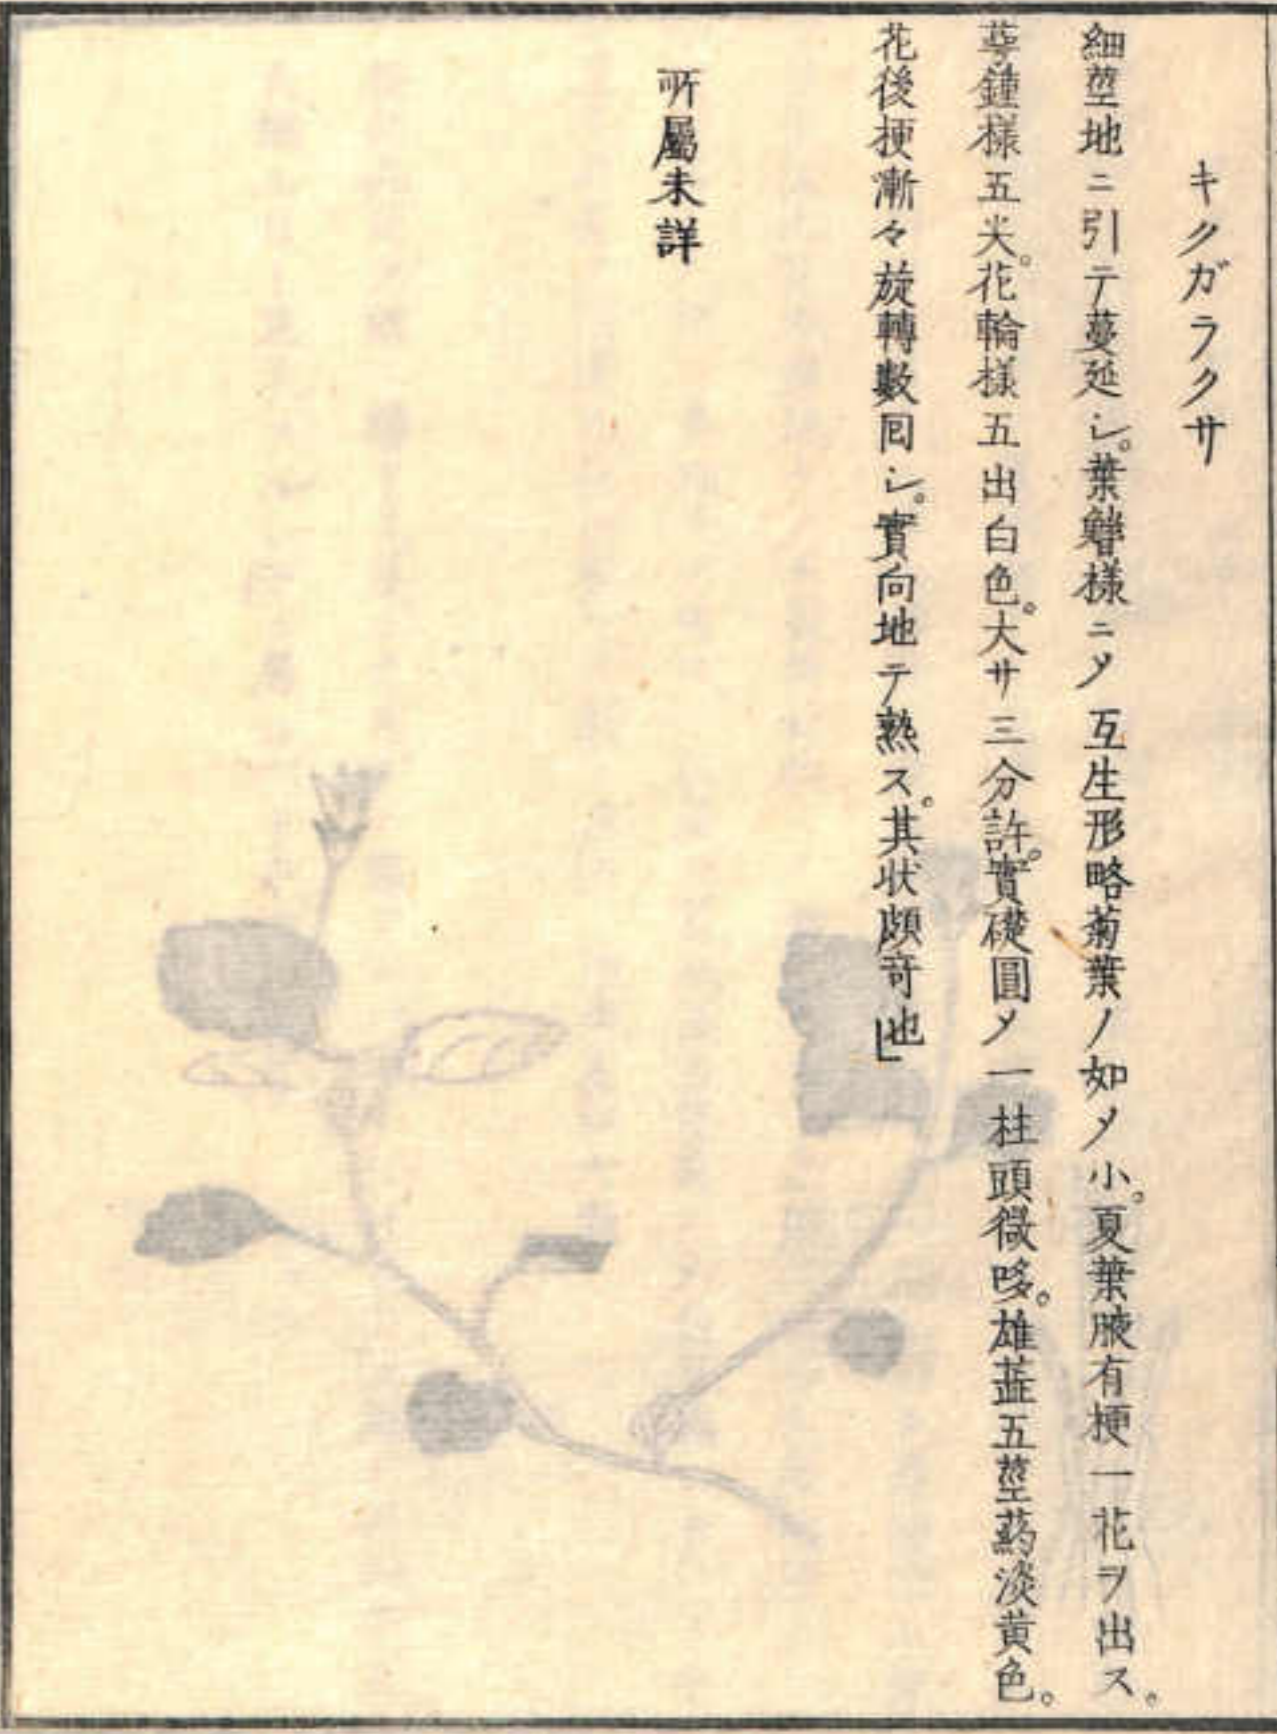 キクガラクサ
細莖地ニ引テ蔓延シ。葉鱗様ニメ互生形略菊葉ノ如メ小。夏葉腋有梗一花ヲ出ス。
萼鐘様五尖。花輪様五出白色。大サ三分許。實礎圓メ一柱頭微哆。雄蕋五莖葯淡黄色。
花後梗漸々旋轉數囘シ。實向地テ熟ス。其状頗竒也」
所屬未詳